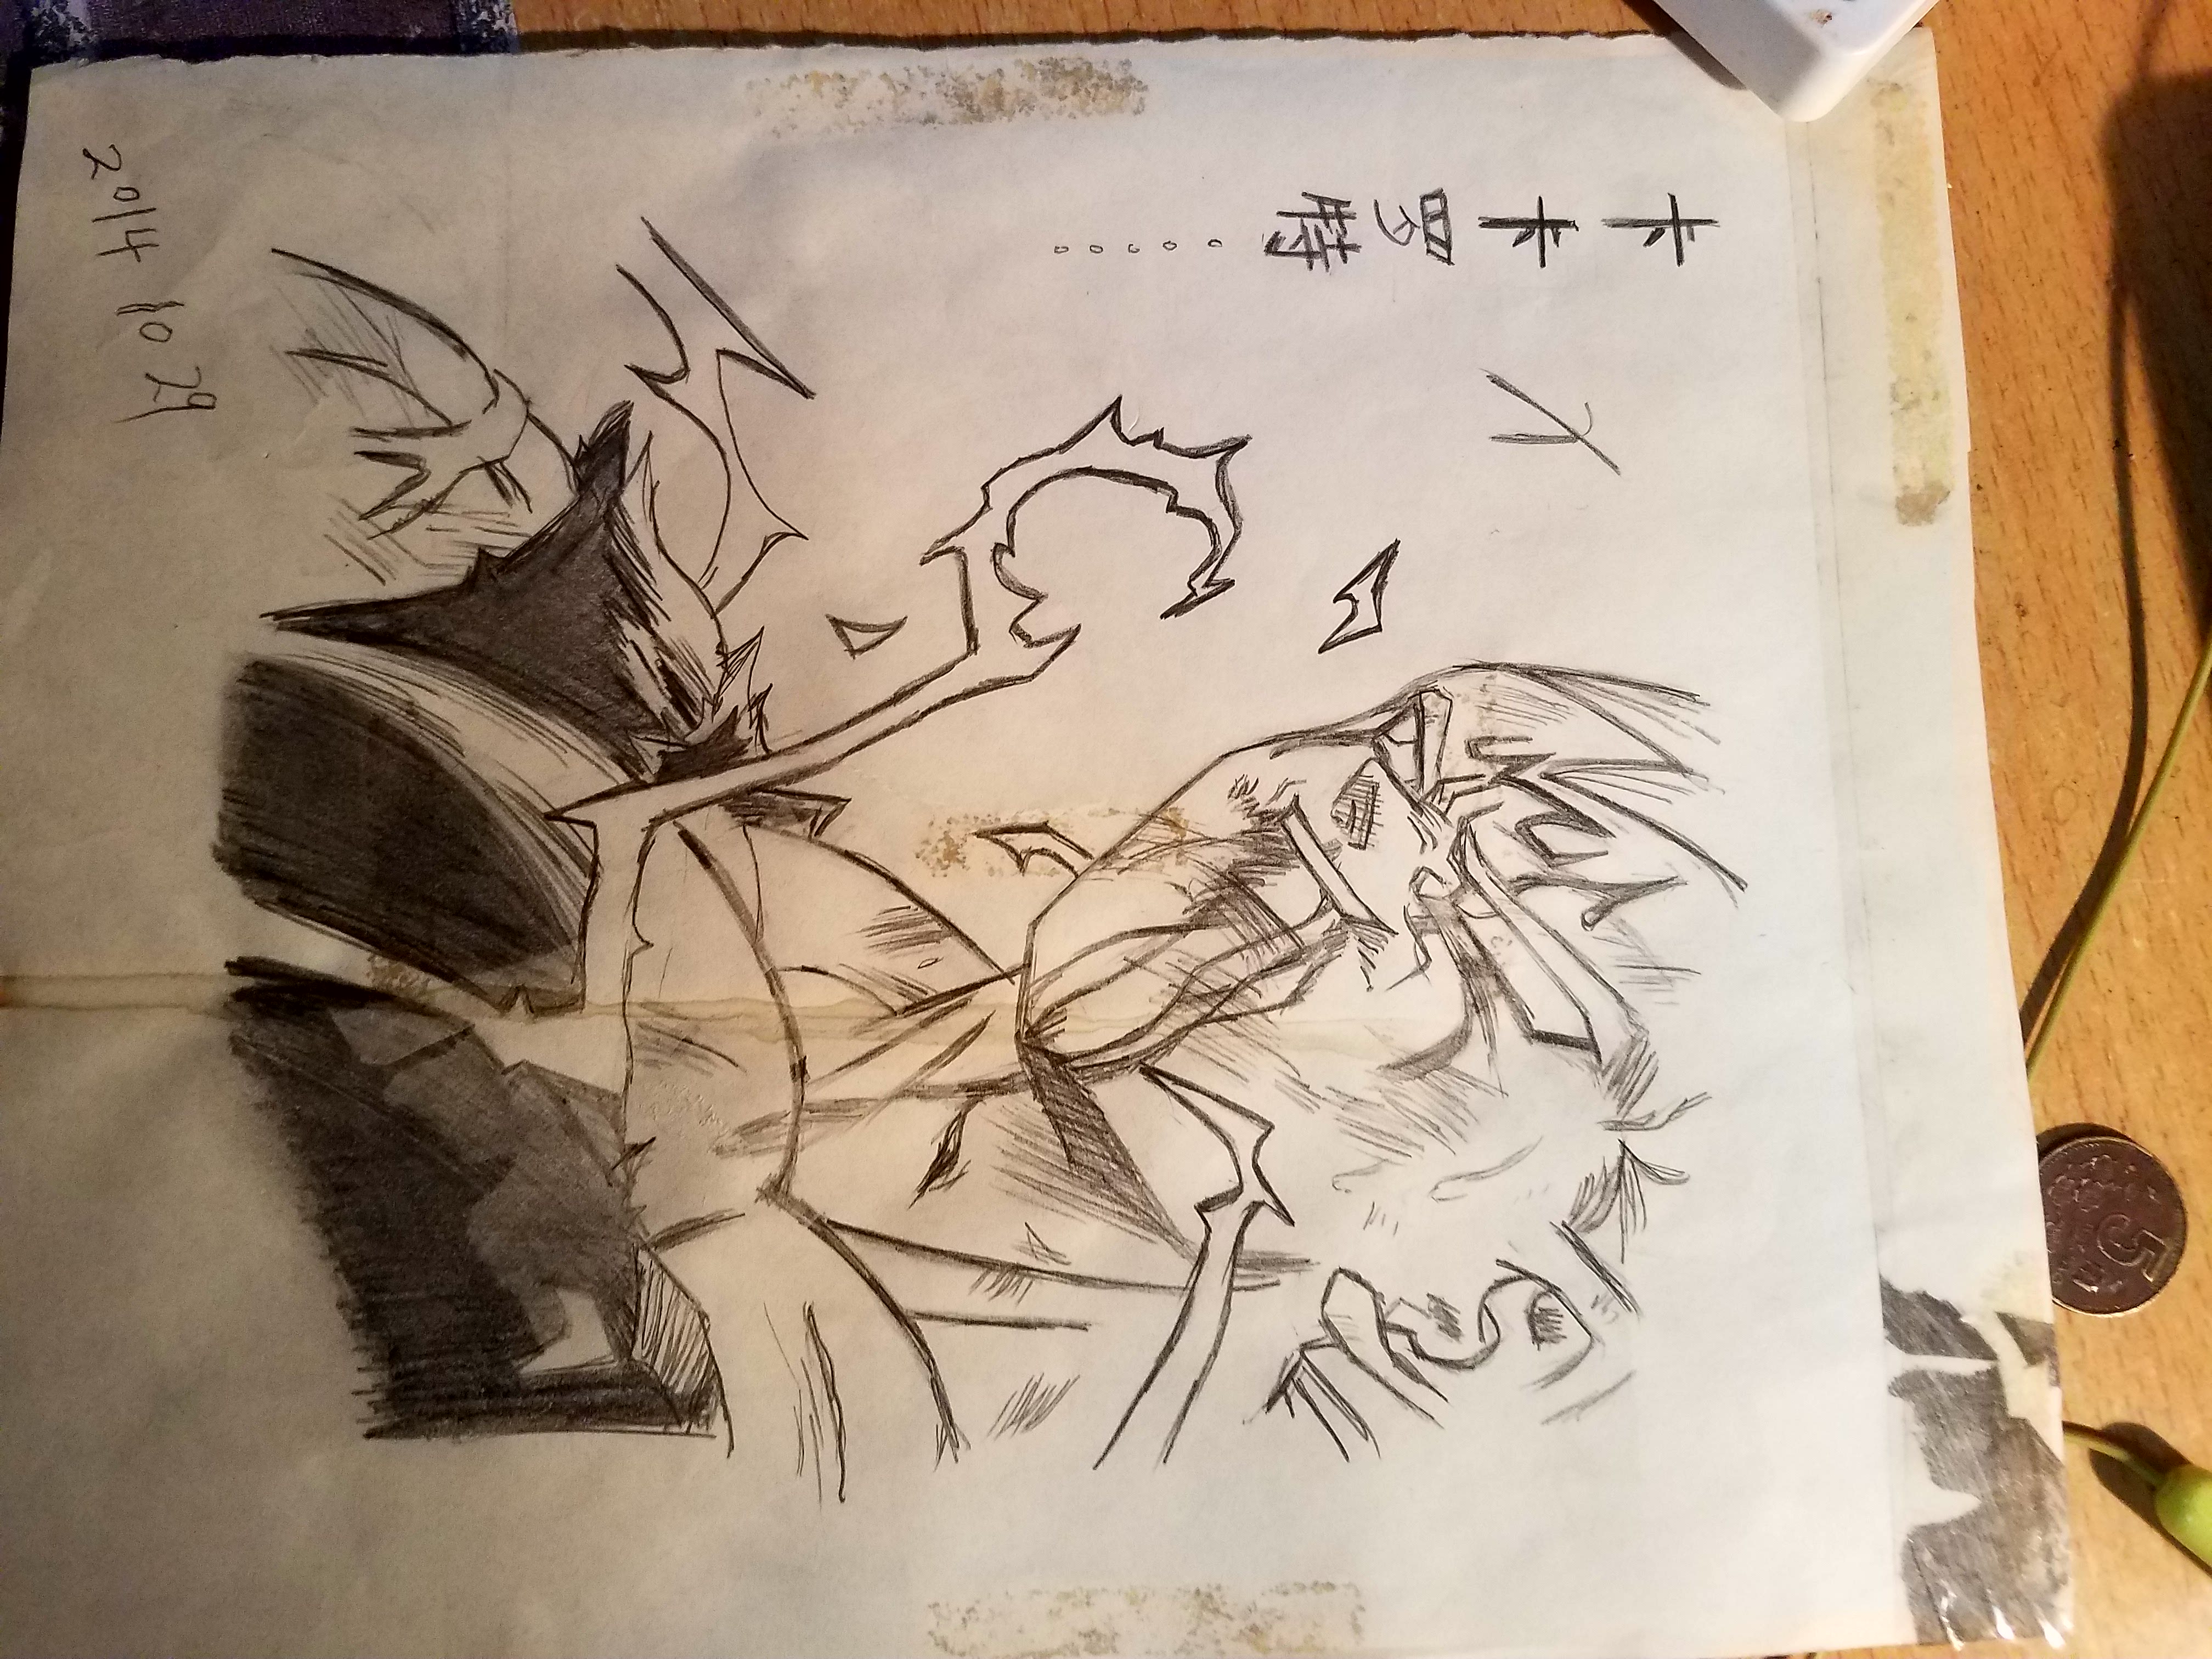 5
卡卡罗特。。。。。
2014 10 29